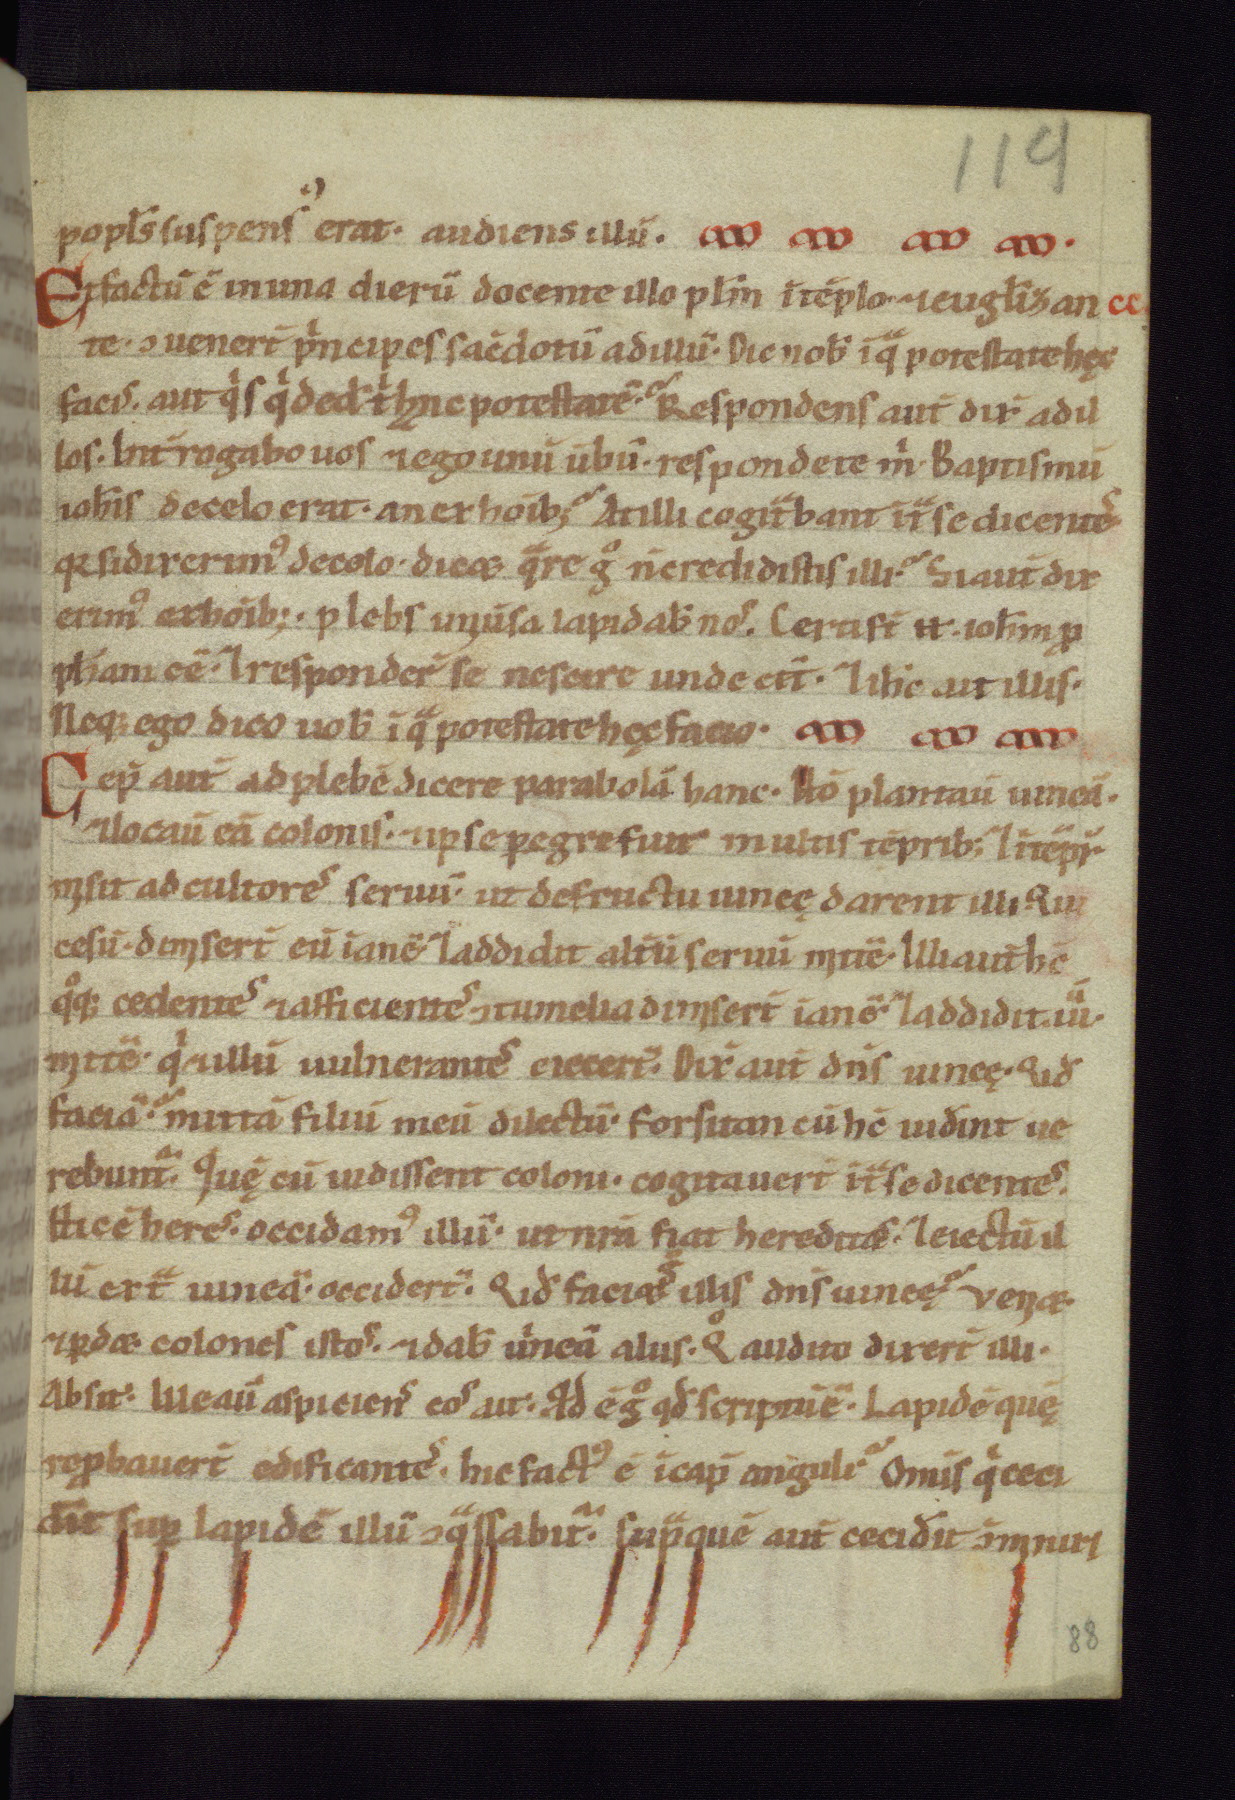 119
popłs suspens᾿ erat. audiens illū.
Et factū ē in una dierū docente illo pľm ītēplo ⁊ euglizan cc
te. ɔuenerť pͥncipes saćdotū ad illū. Dic nob̄ ī qͣ potestate hęc
facis. aut qͥs qͥ ded̄ tͥ hanc potestatē. Respondens aut̄ dix̄ ad il
los. Int̄rogabo uos ⁊ ego unū ūbū. respondete mͥ. Baptismū
ioħis de celo erat. an ex hoīb; At illi cogitᷓbant īťͣ se dicentes
qꝛ si dixerimꝰ de celo. dicæ qͣre gͦ n̄ credidistis illi. Si aut̄ dix
erimꝰ ex hoīb;. plebs uniūsa lapidab̄ nos. Certi sī ⁊⁊. ioħm ꝓ
pħam eē. ⁊ responder̄ se nescire unde eēt̄. ⁊ ihc aut illis.
Neq; ego dico uob̄ ī qͣ potestate hęc facio.
Cep̄ aut̄ ad plebē dicere parabolā hanc. Hō plantau̅ uineā.
⁊ locau̅ eā colonis. ⁊ ipse ꝑegre fuit multis tēprib; ⁊ ī tēpr̄
misit ad cultores seruū. ut de fructu uineę darent illi. Qui
cesū. dimiserť eū ianē. ⁊ addidit alťū seruū mittē. Illi aut̄ hc̄
qͦq; cedentes ⁊ afficientes ɔtumelia dimiserť ianē. ⁊ addidit iiī.
mittē. qͥ ⁊ illū uulnerantes eiecerť. Dix̄ aut̄ dn̄s uineę. Qid
faciā. mittā filiū meū dilectū. forsitan cū hc̄ uid̄int ue
rebunť. Quē cū uidissent coloni. cogitauerť īťͣ se dicentes.
Hic ē heres. occidamꝰ illū. ut nr̄a fiat hereditas. ⁊ eiectū il
lū exťͣ uineā. occiderť. Qid̄ faciæ illis dn̄s uineę. Veniæ
⁊ ꝑdæ colones istos. ⁊ dab̄ uͥneā aliis. Qͦ audito dixerť illi.
Absit. Ille aū aspiciens eos ait. Qͥd ē gͦ qd̄ scriptū ē. Lapidē quē
reꝓbauerť edificantes. hic factꝰ ē ī cap̄ anguli. Omīs qͥ ceci
d̄it suꝑ lapidē illū ɔqͣssabiť. supͣ quē aut̄ cecid̄it ɔminui
88